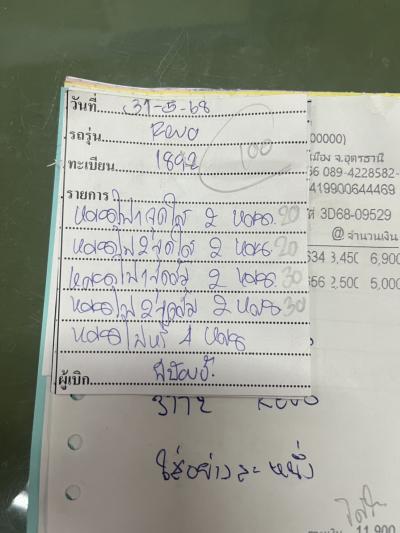 วันที่ 31-5-68
รถรุ่น Revo
ทะเบียน 1892
100
รายการ
หลอดไฟ1จุดใส 2 หลอด 20
หลอดไฟ2จุดใส 2 หลอด 20
หลอดไฟ1จุดส้ม 2 หลอด 30
หลอดไฟ2จุดส้ม 2 หลอด 30
หลอดไฟหรี่ 4 หลอด
ผู้เบิก
00000)
เมือง จ.อุดรธานี
66 089-4228582-
419900644469
3D68-09529
@ จำนวนเงิน
634 3,450 6,900
656 2,500 5,000
3772 Revo
ใส่อย่างละหนึ่ง
11,900